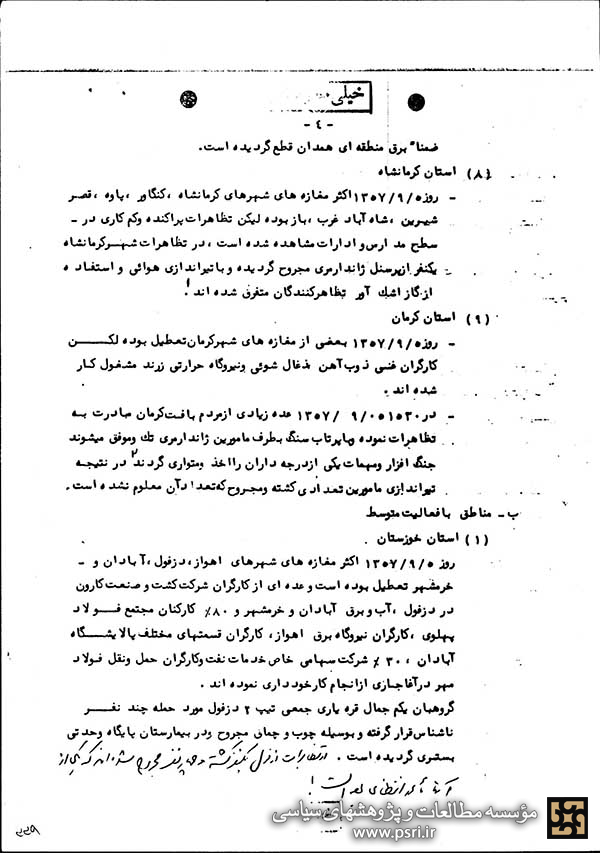 خیلی
- ٤ -
ضمنا" برق منطقه ای همدان قطع گردیده است.
(٨) استان کرمانشاه
- روز ١٣٥٧/٩/٥ اکثر مغازه های شهرهای کرمانشاه ، کنگاور ، پاوه ، قصر
شیرین ، شاه آباد غرب ، باز بوده لیکن تظاهرات پراکنده وکم کاری در -
سطح مدارس و ادارات مشاهده شده است ، در تظاهرات شهر کرمانشاه
یکنفر ازپرسنل ژاندارمری مجروح گردیده و با تیراندازی هوائی و استفاده
از گاز اشك آور تظاهرکنندگان متفرق شده اند .
(٩) استان کرمان
- روز ١٣٥٧/٩/٥ بعضی از مغازه های شهرکرمان تعطیل بوده لکن
کارگران فنی ذوب آهن ذغال شوئی ونیروگاه حرارتی زرند مشغول کار
شده اند .
- در ٠٥١٥٣٠/٩/١٣٥٧ عده زیادی ازمردم بافت کرمان مبادرت به
تظاهرات نموده وباپرتاب سنگ بطرف مامورین ژاندارمری تك وموفق میشوند
جنگ افزار ومهمات یکی ازدرجه داران را اخذ ومتواری گردند در نتیجه
تیراندازی مامورین تعدادی کشته ومجروح که تعداد آن معلوم نشده است.
ب - مناطق با فعالیت متوسط
(١) استان خوزستان
روز ١٣٥٧/٩/٥ اکثر مغازه های شهرهای اهواز، دزفول ، آبادان و -
خرمشهر تعطیل بوده است و عده ای از کارگران شرکت کشت و صنعت کارون
در دزفول ، آب و برق آبادان و خرمشهر و ٨٠٪ کارکنان مجتمع فولاد
پهلوی ، کارگران نیروگاه برق اهواز، کارگران قسمتهای مختلف پالایشگاه
آبادان ، ٣٠ ٪ شرکت سهامی خاص خدمات نفت وکارگران حمل ونقل فولاد
مهر در آغاجاری ازانجام کار خودداری نموده اند .
گروهبان یکم جمال قره یاری جمعی تیپ ٢ دزفول مورد حمله چند نفر
ناشناس قرار گرفته و بوسیله چوب و چماق مجروح ودر بیمارستان پایگاه وحدتی
بستری گردیده است .
مؤسسه مطالعات و پژوهشهای سیاسی
www.psri.ir